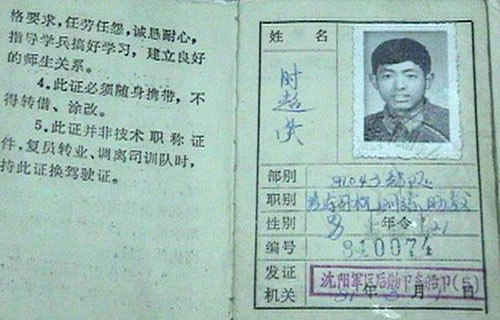 格要求，任劳任怨，诚恳耐心，
指导学兵搞好学习，建立良好
的师生关系。
4.此证必须随身携带，不
得转借、涂改。
5.此证并非技术职称证
件，复员转业、调离司训队时，
持此证换驾驶证。
姓名
时超
部别
职别
性别 男 年令 21
编号 810074
发证
机关
沈阳军区后勤
年 月 日